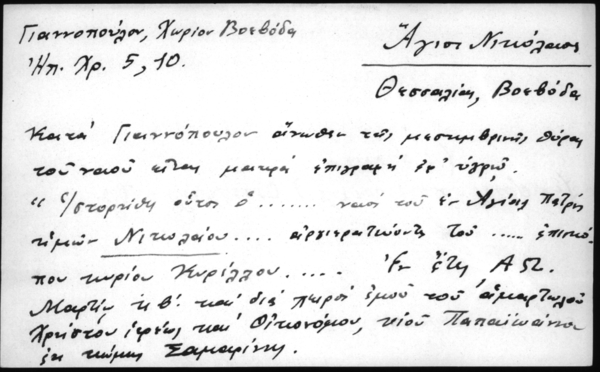 Γιαννοπούλου, Χωρίον Βοεβόδα
Ἠπ. Χρ. 5, 10.
Ἅγιος Νικόλαος
Θεσσαλίας, Βοεβόδα
Κατά Γιαννόπουλον ἄνωθεν τῆς μεσημβρινῆς θύρας
τοῦ ναοῦ εἶναι μακρά ἐπιγραφή ἐν ὑγρῷ.
"Ἱστορήθη οὗτος ὁ ........ ναός τοῦ ἐν Ἁγίοις Πατρός
ἡμῶν Νικολαίου .... ἀρχιερατεύοντος τοῦ ..... ἐπισκό-
που κυρίου Κυρίλλου ..... Ἐν ἔτη
Μαρτίῳ κβ'. καί διά χειρός ἐμοῦ τοῦ ἁμαρτωλοῦ
Χρήστου ἱερέως καί Οἰκονόμου, υἱοῦ Παπαϊωάννου
ἐκ κώμης Σαμαρίνης.